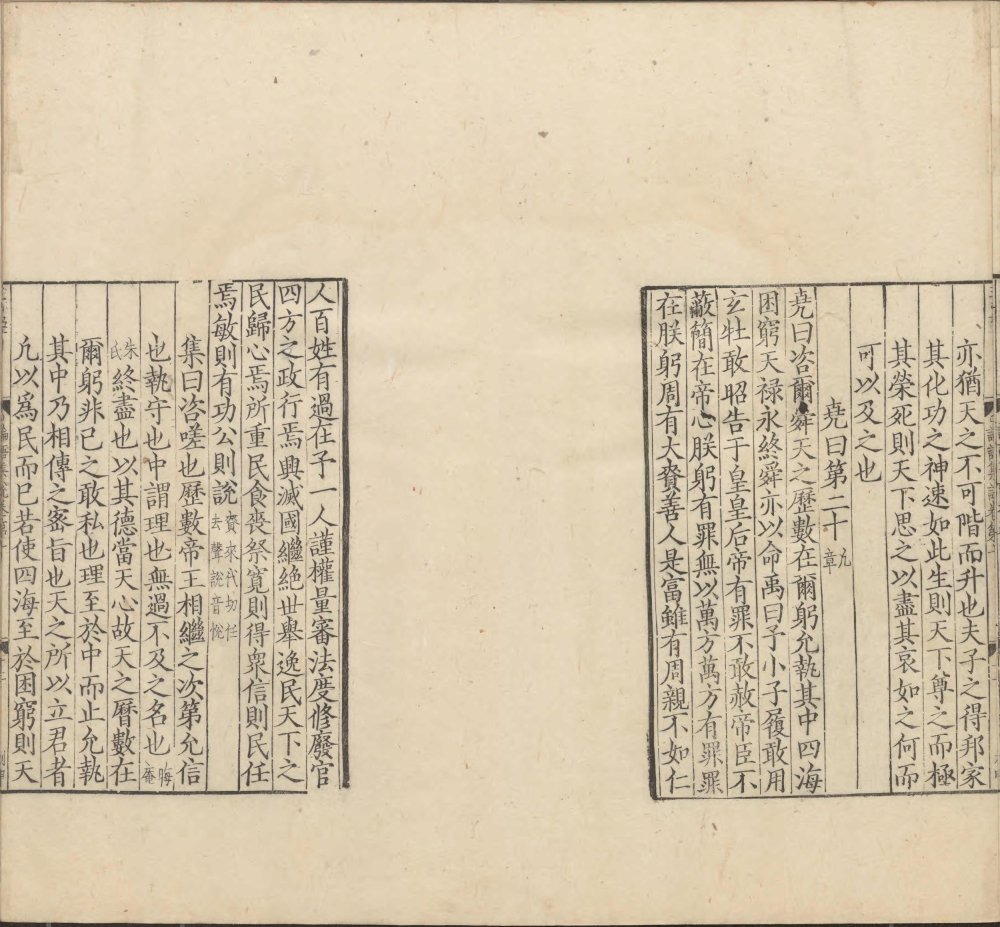 亦猶天之不可階而升也夫子之得邦家
其化功之神速如此生則天下尊之而極
其榮死則天下思之以盡其哀如之何而
可以及之也
堯曰第二十 九章
堯曰咨爾舜天之歷數在爾躬允執其中四海
困窮天禄永終舜亦以命禹曰予小子履敢用
玄牡敢昭告于皇皇后帝有罪不敢赦帝臣不
蔽簡在帝心朕躬有罪無以萬方萬方有罪罪
在朕躬周有大賚善人是富雖有周親不如仁
人百姓有過在予一人謹權量審法度修廢官
四方之政行焉興滅國繼絶世舉逸民天下之
民歸心焉所重民食喪祭寬則得衆信則民任
焉敏則有功公則說 賚來代切任去聲說音悅
集曰咨嗟也歷數帝王相繼之次第允信
也執守也中謂理也無過不及之名也 晦庵
朱氏 終盡也以其德當天心故天之曆數在
爾躬非己之敢私也理至於中而止允執
其中乃相傳之宻旨也天之所以立君者
凡以爲民而已若使四海至於困窮則天